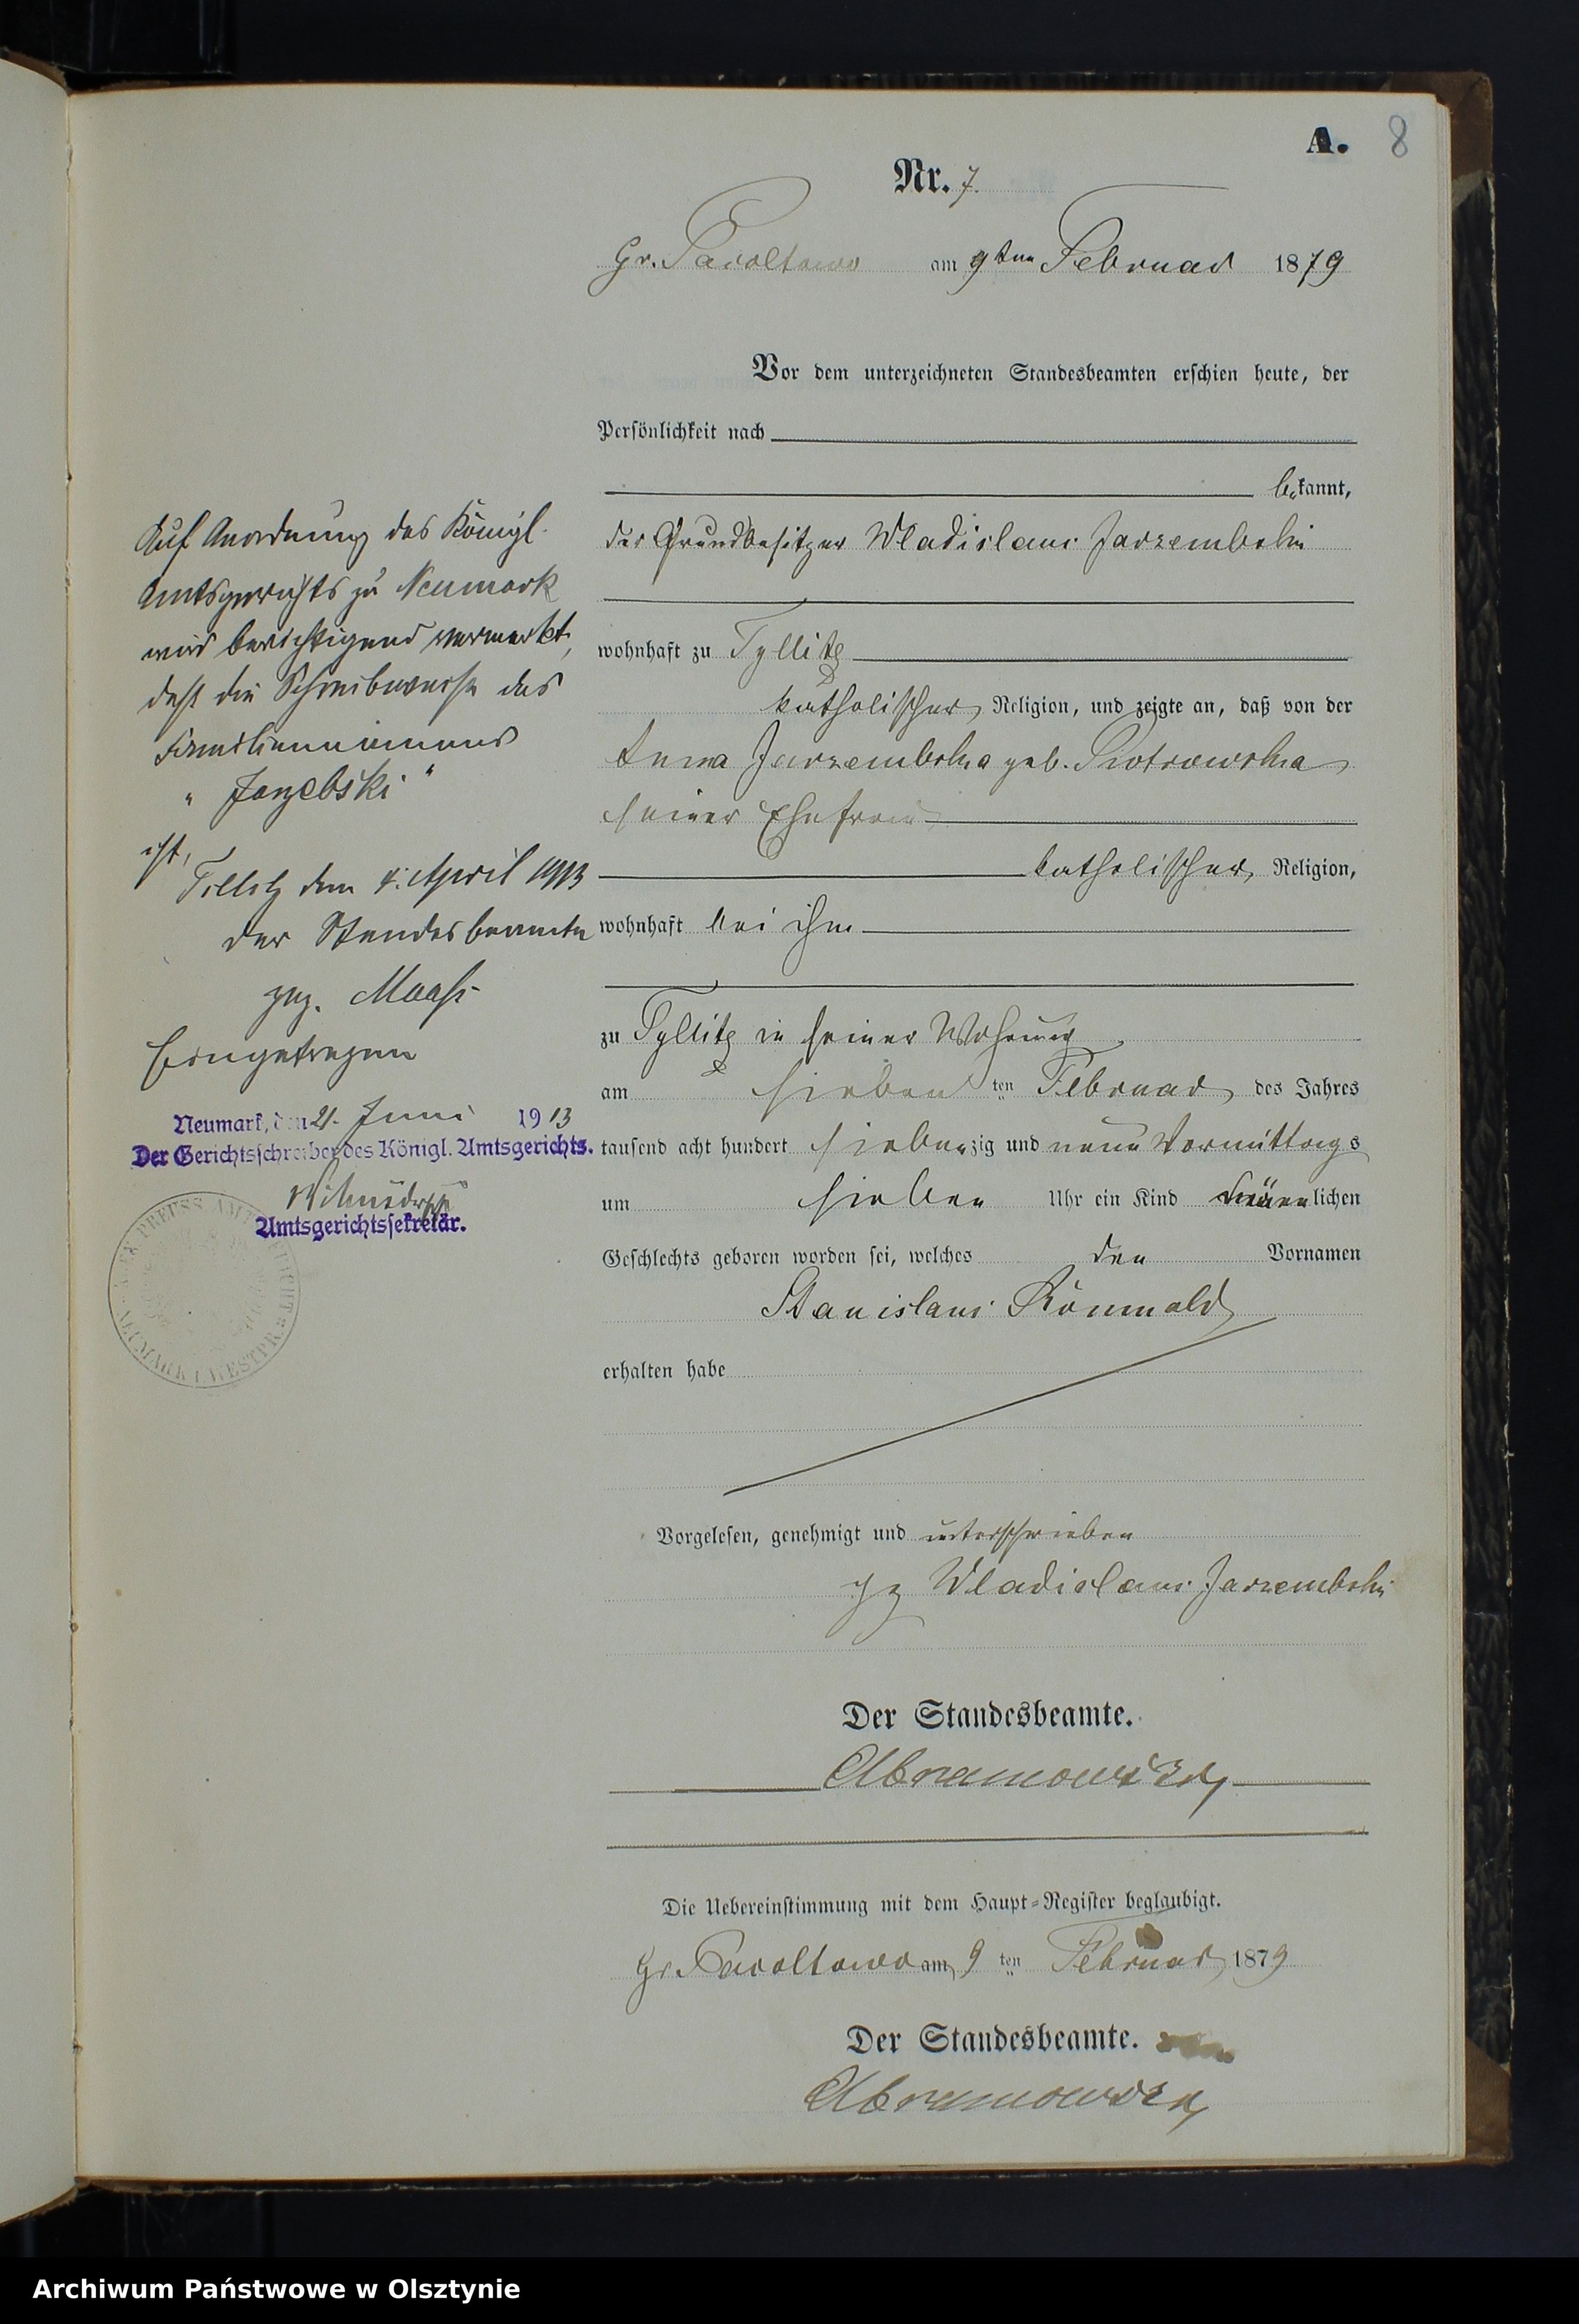 A. 8
Nr. 7.
Gr. Pacoltowo am 9ten Februar 1879
Vor dem unterzeichneten Standesbeamten erschien heute, der
Persönlichkeit nach
bekannt,
der Grundbesitzer Wladislaus Jarzembski
wohnhaft zu Tyllitz
katholischer Religion, und zeigte an, daß von der
Anna Jarzembska geb. Piotrowska
seiner Ehefrau
katholischer Religion,
wohnhaft bei ihm
zu Tyllitz in seiner Wohnung
am sieben ten Februar des Jahres
tausend acht hundert siebenzig und neun Vormittags
um sieben Uhr ein Kind männlichen
Geschlechts geboren worden sei, welches den Vornamen
Stanislaus Romuald
erhalten habe
Vorgelesen, genehmigt und unterschrieben
gz Wladislaus Jarzembski
Der Standesbeamte.
Abramowski
Die Uebereinstimmung mit dem Haupt-Register beglaubigt.
Gr. Pacoltowo am 9 ten Februar 1879
Der Standesbeamte.
Abramowski
Auf Anordnung des Königl.
Amtsgerichts zu Neumark
wird berichtigend vermerkt,
daß die Schreibweise des
Familiennamens
"Jarzebski"
ist,
Tillitz den 4. April 1913
der Standesbeamte
gez. Maaß
Eingetragen
Neumark, den 21. Juni 1913
Der Gerichtsschreiber des Königl. Amtsgerichts.
Amtsgerichtssekretär.
Archiwum Państwowe w Olsztynie